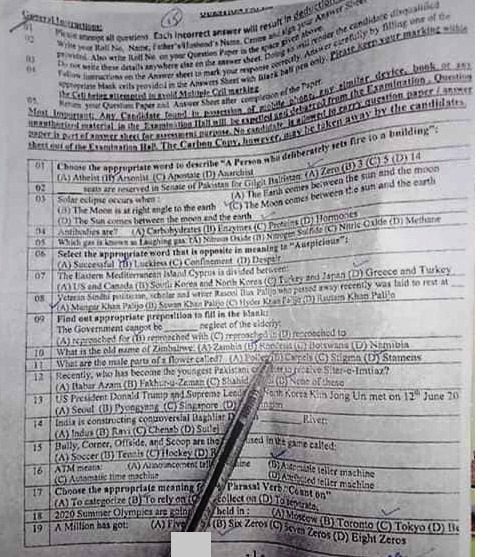 General Instructions: (15)
01 Please attempt all questions. Each incorrect answer will result in deduction
02 Write your Roll No. Name, Father's/Husband's Name, Centre and sign your Answer Sheet
provided. Also write Roll No. on your Question Paper in the space given above.
03 Do not write these details anywhere else on the answer sheet. Doing so will render the candidate disqualified
04 Follow instructions on the Answer sheet to mark your response correctly. Answer carefully by filling one of the
appropriate blank cells provided in the Answers Sheet with Black ball pen only. Please keep your marking within
the Cell being attempted to avoid Multiple Cell marking
05. Return your Question Paper and Answer Sheet after completion of the Paper.
Most Important: Any Candidate found in possession of mobile phone, any similar device, book or any
unauthorized material in the Examination Hall will be expelled and debarred from the Examination. Question
paper is part of answer sheet for assessment purpose. No candidate is allowed to carry question paper / answer
sheet out of the Examination Hall. The Carbon Copy, however, may be taken away by the candidates.
01 Choose the appropriate word to describe "A Person who deliberately sets fire to a building":
(A) Atheist (B) Arsonist (C) Apostate (D) Anarchist
02 ____ seats are reserved in Senate of Pakistan for Gilgit Baltistan. (A) Zero (B) 3 (C) 5 (D) 14
03 Solar eclipse occurs when: (A) The Earth comes between the sun and the moon
(B) The Moon is at right angle to the earth (C) The Moon comes between the sun and the earth
(D) The Sun comes between the moon and the earth
04 Antibodies are? (A) Carbohydrates (B) Enzymes (C) Proteins (D) Hormones
05 Which gas is known as Laughing gas: (A) Nitrous Oxide (B) Nitrogen Sulfide (C) Nitric Oxide (D) Methane
06 Select the appropriate word that is opposite in meaning to "Auspicious":
(A) Successful (B) Luckless (C) Confinement (D) Despair
07 The Eastern Mediterranean Island Cyprus is divided between:
(A) US and Canada (B) South Korea and North Korea (C) Turkey and Japan (D) Greece and Turkey
08 Veteran Sindhi politician, scholar and writer Rasool Bux Palijo who passed away recently was laid to rest at ____
(A) Mungar Khan Palijo (B) Sawan Khan Palijo (C) Hyder Khan Palijo (D) Rustam Khan Palijo
09 Find out appropriate preposition to fill in the blank:
The Government cannot be ____ neglect of the elderly:
(A) reproached for (B) reproached with (C) reproached in (D) reproached to
10 What is the old name of Zimbabwe: (A) Zambia (B) Rhodesia (C) Botswana (D) Namibia
11 What are the male parts of a flower called? (A) Pollen (B) Carpels (C) Stigma (D) Stamens
12 Recently, who has become the youngest Pakistani to receive Sitar-e-Imtiaz?
(A) Babar Azam (B) Fakhar-u-Zaman (C) Shahid (D) None of these
13 US President Donald Trump and Supreme Leader North Korea Kim Jong Un met on 12th June 20
(A) Seoul (B) Pyongyang (C) Singapore (D)
14 India is constructing controversial Baglihar D River:
(A) Indus (B) Ravi (C) Chenab (D) Sutlej
15 Bully, Corner, Offside, and Scoop are the used in the game called:
(A) Soccer (B) Tennis (C) Hockey (D)
16 ATM means: (A) Announcement teller machine (B) Automatic teller machine
(C) Automatic time machine (D) Attributed teller machine
17 Choose the appropriate meaning Phrasal Verb "Count on"
(A) To categorize (B) To rely on (C) collect on (D) To separate
18 2020 Summer Olympics are going held in: (A) Moscow (B) Toronto (C) Tokyo (D)
19 A Million has got: (A) Five (B) Six Zeros (C) Seven Zeros (D) Eight Zeros